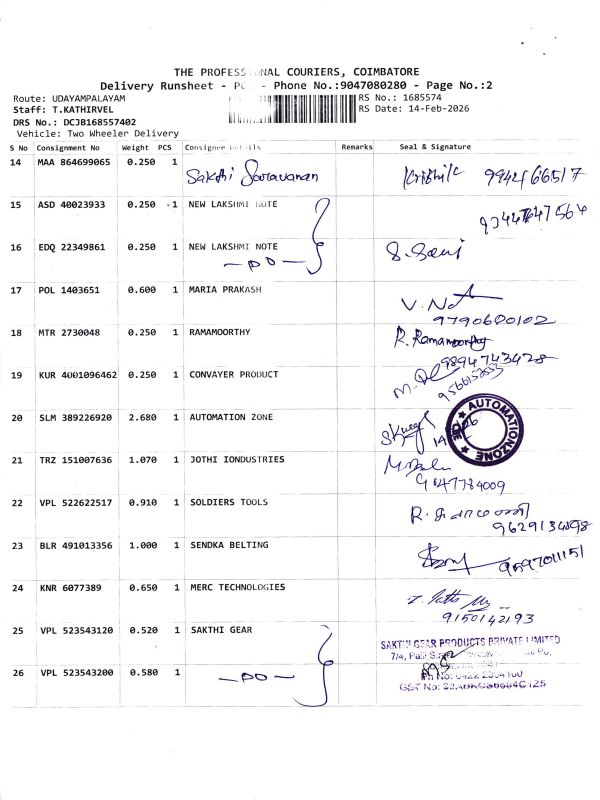 THE PROFESSIONAL COURIERS, COIMBATORE
Delivery Runsheet - - Phone No.:9047080280 - Page No.:2
Route: UDAYAMPALAYAM RS No.: 1685574
Staff: T.KATHIRVEL RS Date: 14-Feb-2026
DRS No.: DCJB168557402
Vehicle: Two Wheeler Delivery
S No Consignment No Weight PCS Consignee Details Remarks Seal & Signature
14 MAA 864699065 0.250 1 Sakthi Saravanan 9942466517
15 ASD 40023933 0.250 1 NEW LAKSHMI NOTE 9344747564
16 EDQ 22349861 0.250 1 NEW LAKSHMI NOTE
- DO -
17 POL 1403651 0.600 1 MARIA PRAKASH
9790600102
18 MTR 2730048 0.250 1 RAMAMOORTHY R. Ramamoorthy
9894743428
19 KUR 4001096462 0.250 1 CONVAYER PRODUCT
20 SLM 389226920 2.680 1 AUTOMATION ZONE AUTOMATIONZONE CBE
21 TRZ 151007636 1.070 1 JOTHI IONDUSTRIES
9047784009
22 VPL 522622517 0.910 1 SOLDIERS TOOLS
23 BLR 491013356 1.000 1 SENDKA BELTING 9597011151
24 KNR 6077389 0.650 1 MERC TECHNOLOGIES
9150142193
25 VPL 523543120 0.520 1 SAKTHI GEAR SAKTHI GEAR PRODUCTS PRIVATE LIMITED
26 VPL 523543200 0.580 1 - DO -